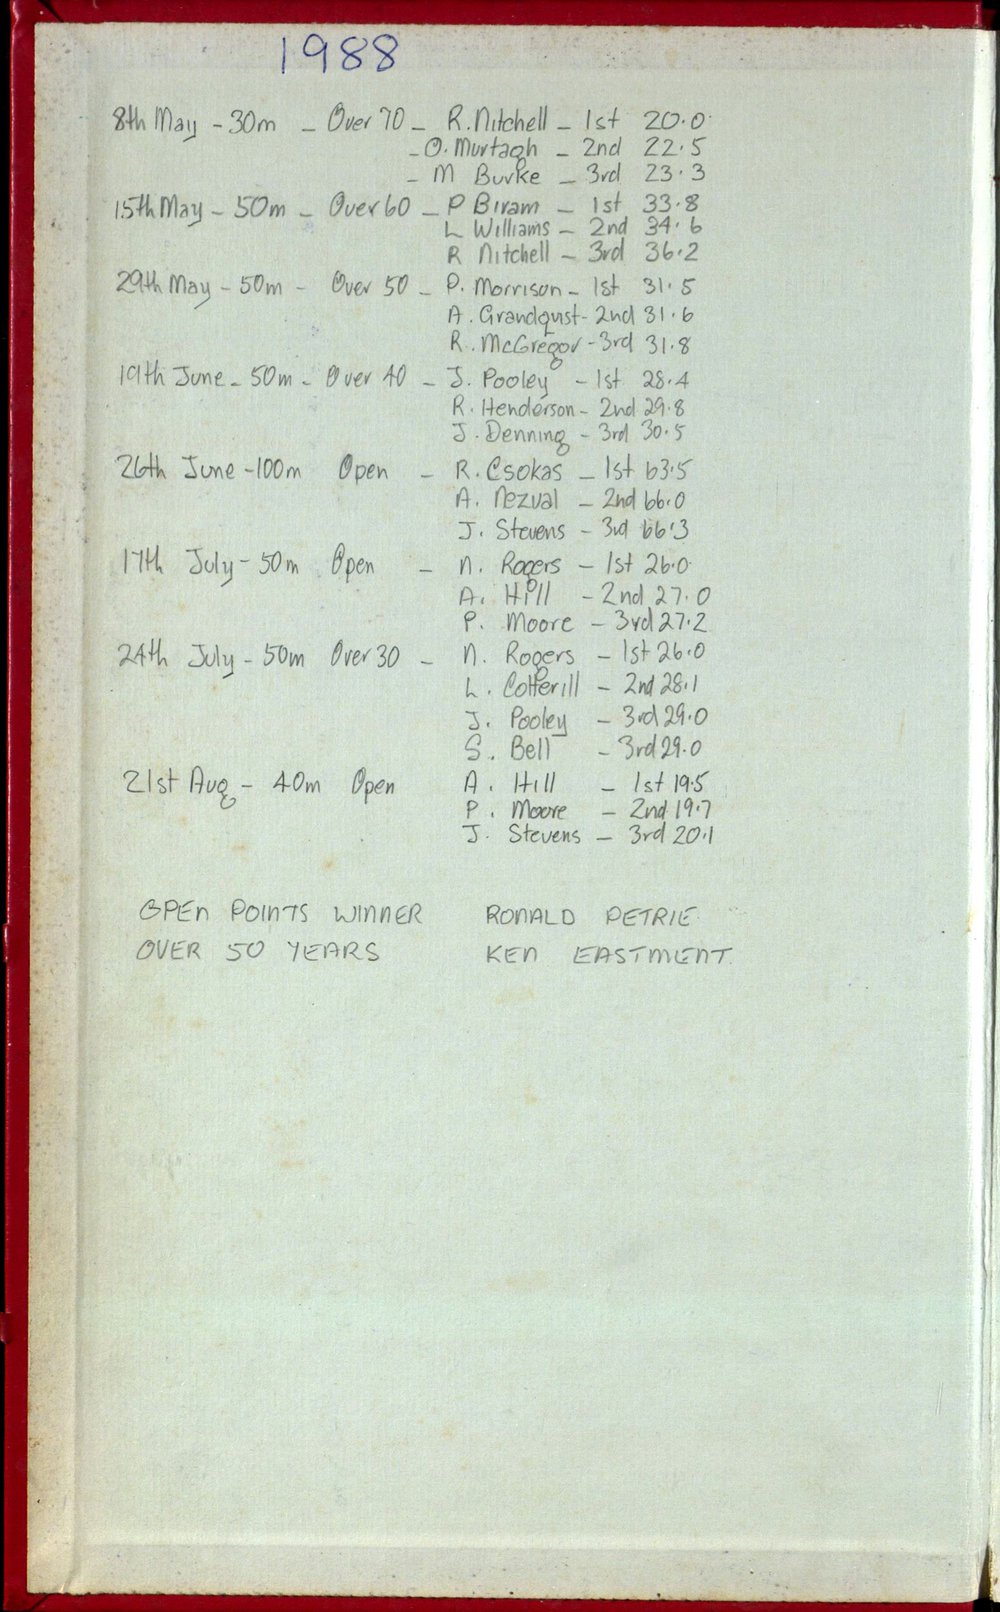 1988
8th May - 30m - Over 70 - R. Nitchell - 1st 20.0
- O. Murtagh - 2nd 22.5
- M Burke - 3rd 23.3
15th May - 50m - Over 60 - P Biram - 1st 33.8
L Williams - 2nd 34.6
R Nitchell - 3rd 36.2
29th May - 50m - Over 50 - P. Morrison - 1st 31.5
A. Grandqust - 2nd 31.6
R. McGregor - 3rd 31.8
19th June - 50m - Over 40 - J. Pooley - 1st 28.4
R. Henderson - 2nd 29.8
J. Denning - 3rd 30.5
26th June - 100m Open - R. Csokas - 1st 63.5
A. Nezval - 2nd 66.0
J. Stevens - 3rd 66.3
17th July - 50m Open - N. Rogers - 1st 26.0
A. Hill - 2nd 27.0
P. Moore - 3rd 27.2
24th July - 50m Over 30 - N. Rogers - 1st 26.0
L. Cotterill - 2nd 28.1
J. Pooley - 3rd 29.0
S. Bell - 3rd 29.0
21st Aug - 40m Open A. Hill - 1st 19.5
P. Moore - 2nd 19.7
J. Stevens - 3rd 20.1
OPEN POINTS WINNER RONALD PETRIE
OVER 50 YEARS KEN EASTMENT.